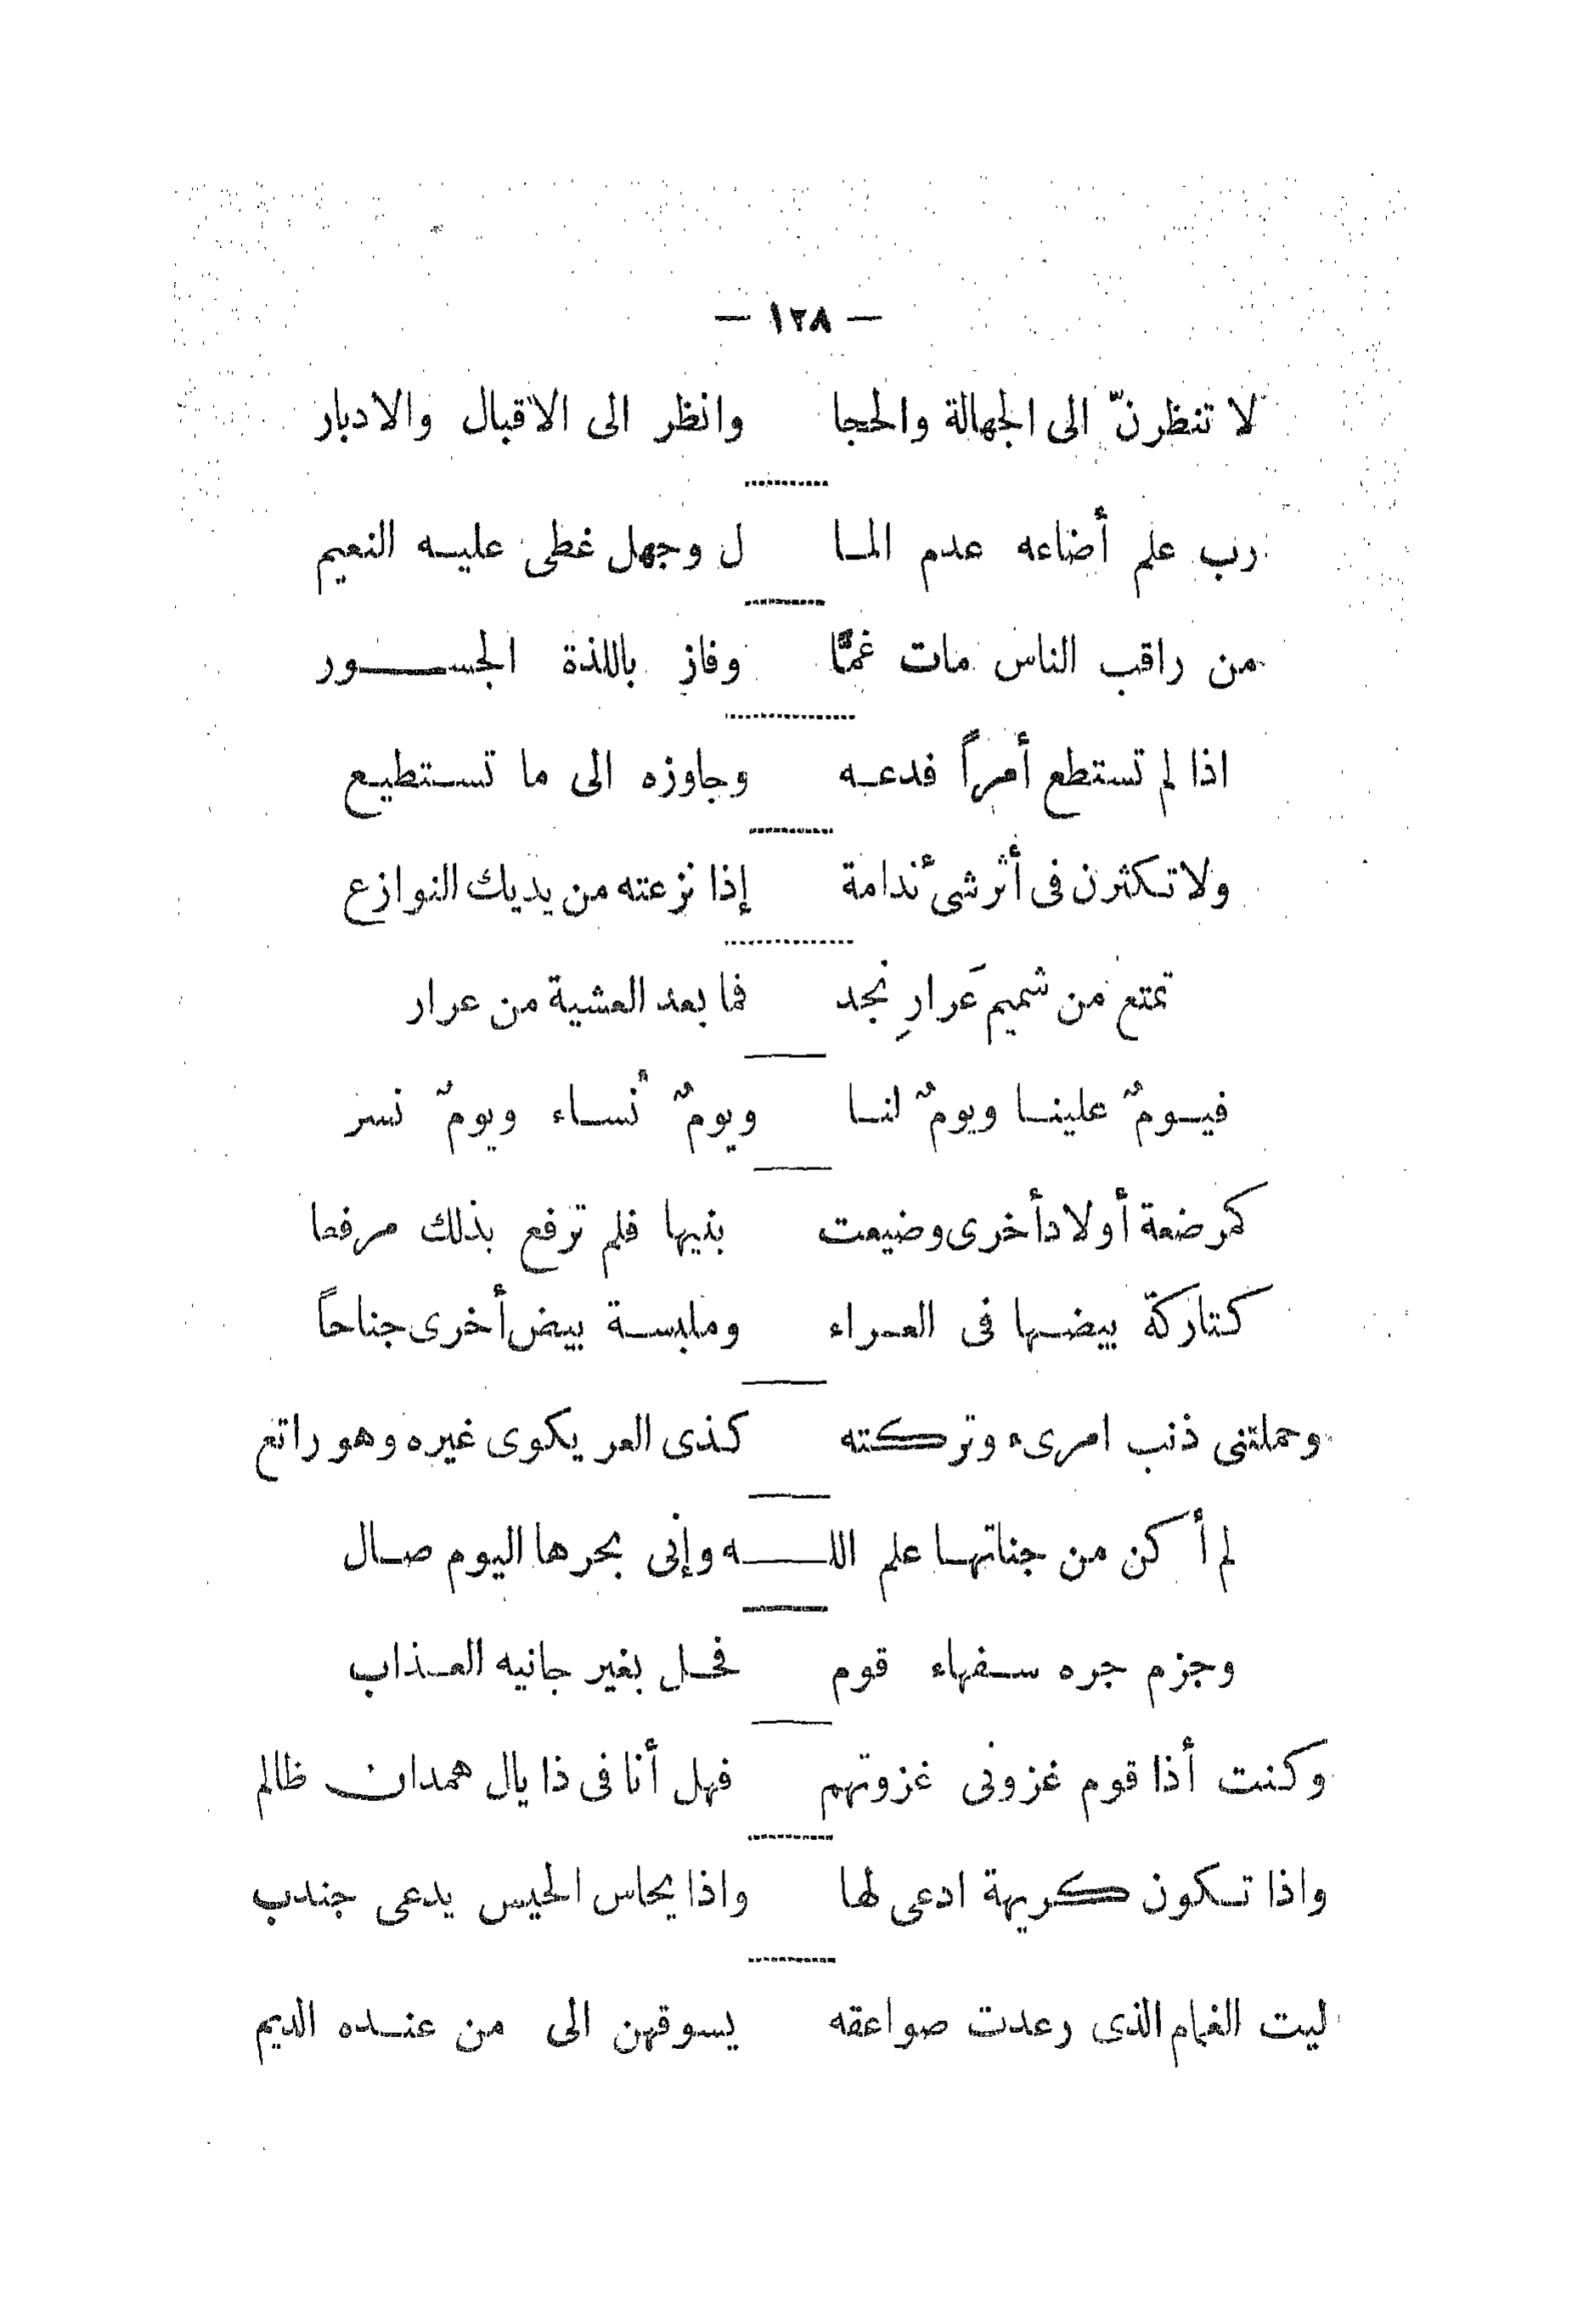 — ١٢٨ —
لا تنظرنّ الى الجهالة والحجا وانظر الى الاقبال والادبار
رب علم أضاعه عدم المـا ل وجهل غطى عليـه النعيم
من راقب الناس مات غمًّا وفاز باللذة الجســـور
اذا لم تستطع أمراً فدعـه وجاوزه الى ما تسـتطيـع
ولا تكثرن فى أثر شئ ندامة إذا نزعته من يديك النوازع
تمتع من شميم عَرارِ نجد فما بعد العشية من عرار
فيـومٌ علينـا ويومٌ لنـا ويومٌ نُسـاء ويومٌ نسر
كمرضعة أولاد أخرى وضيعت بنيها فلم ترفع بذلك مرفعا
كتاركة بيضـها فى العـراء وملبسـة بيض أخرى جناحاً
وحملتنى ذنب امرىء وتركته كذى العر يكوى غيره وهو راتع
لم أكن من جناتهـا علم اللـــه وإنى بحرها اليوم صـال
وجزم جره سـفهاء قوم فحـل بغير جانيه العـذاب
وكنت أذا قوم غزونى غزوتهم فهل أنا فى ذا يال همدان ظالم
واذا تـكون كريهة ادعى لها واذا يحاس الحيس يدعى جندب
ليت الغمام الذى رعدت صواعقه يسوقهن الى من عنـده الديم